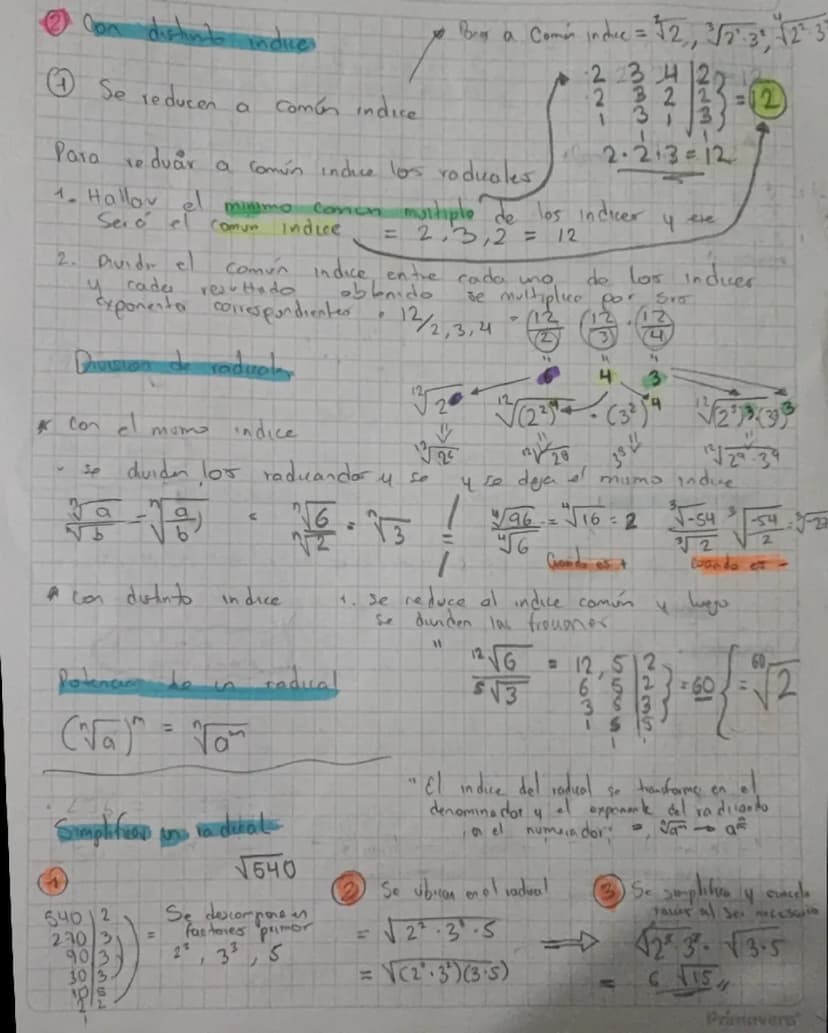 ② Con distinto indice
Para a Común indice = ²√2, ³√2²·3², ⁴√2³·3
① Se reducen a común indice
2 3 4 | 2
2 3 2 | 2
1 3 1 | 3
= 12
2·2·3 = 12
Para reducir a común indice los radicales
1. Hallar el minimo comun multiplo de los indices y ese
Será el comun indice = 2, 3, 2 = 12
2. Dividir el común indice entre cada uno de los indices
y cada resultado obtenido se multiplica por sus
exponentes correspondientes 12/2,3,4 = (12/2) (12/3) (12/4)
6 4 3
Division de radicales
¹²√2⁶ ¹²√(2²)⁴ · (3²)⁴ ¹²√(2³)³·(3)³
* Con el mismo indice
- se dividen los radicandos y se y se deja el mismo indice
ⁿ√a / ⁿ√b = ⁿ√(a/b) ⁿ√6 / ⁿ√2 = ⁿ√3 ⁴√96 / ⁴√6 = ⁴√16 = 2 ³√-54 / ³√2 ³√(-54/2) = ³√-27
Cuando es + Cuando es -
* Con distinto indice 1. se reduce al indice común y luego
se dividen las
¹²√6 / ⁵√3 = 12, 5 | 2
6 5 | 2
3 5 | 3
1 5 | 5
= 60 = ⁶⁰√2
Potencia de un radical
(ⁿ√a)ᵐ = ⁿ√aᵐ
"El indice del radical se transforma en el
denominador y el exponente del radicando
en el numerador
Simplificar un radical
√540
①
540 | 2
270 | 3
90 | 3
30 | 3
10 | 5
2 | 2
1
= Se descompone en
factores primos
2², 3³, 5
② Se ubican en el radical
= √2²·3³·5
= √(2²·3²)(3·5)
③ Se simplifica y cancela
√2²·3² · √3·5
= 6√15
Primavera